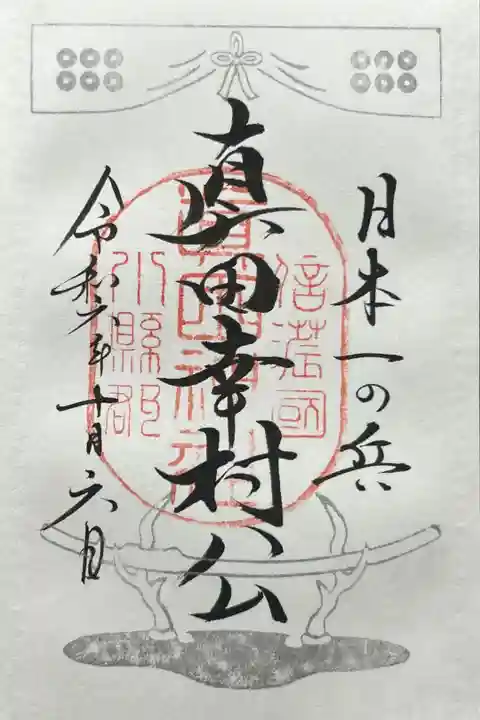 日本一の兵
真田幸村公
令和六年十月六日
信濃國
眞田神社
小縣郡